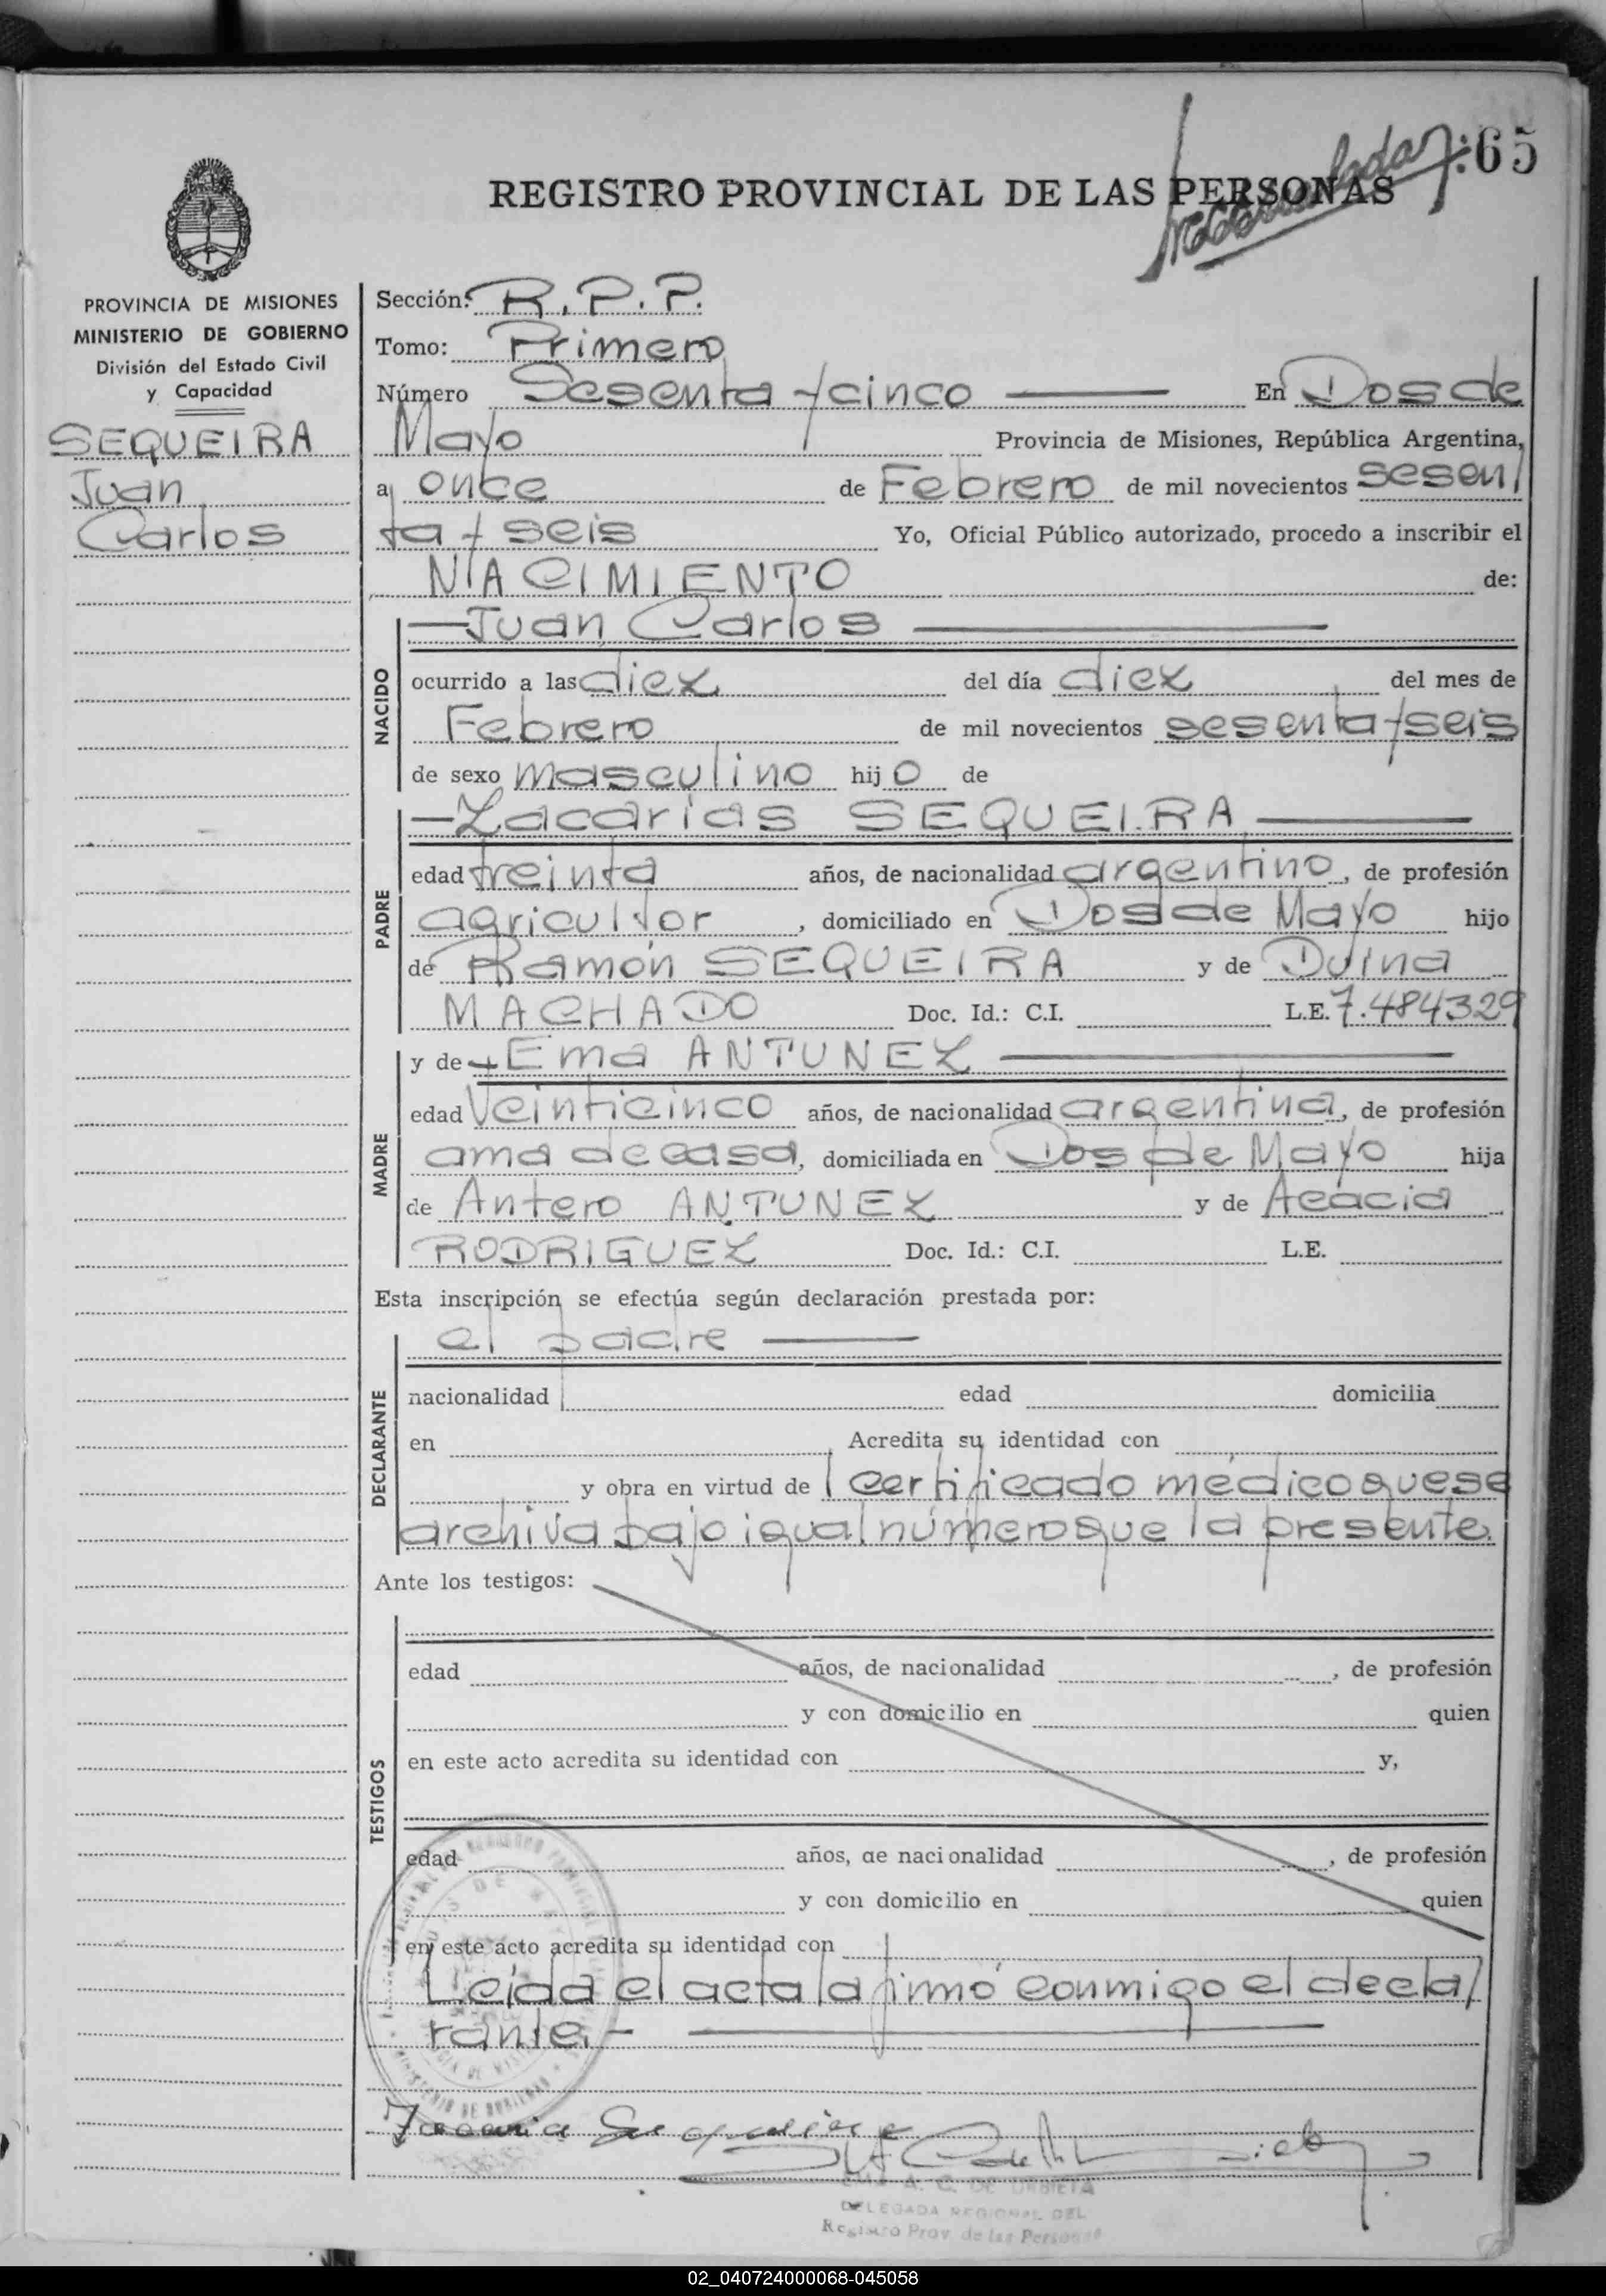 :65
REGISTRO PROVINCIAL DE LAS PERSONAS
PROVINCIA DE MISIONES
MINISTERIO DE GOBIERNO
División del Estado Civil
y Capacidad
SEQUEIRA
Juan
Carlos
Sección: R.P.P.
Tomo: Primero
Número Sesenta y cinco En Dos de
Mayo Provincia de Misiones, República Argentina,
a once de Febrero de mil novecientos sesen/
ta y seis Yo, Oficial Público autorizado, procedo a inscribir el
NACIMIENTO de:
NACIDO
Juan Carlos
ocurrido a las diez del día diez del mes de
Febrero de mil novecientos sesenta y seis
de sexo masculino hijo de
PADRE
Zacarias SEQUEIRA
edad treinta años, de nacionalidad argentino, de profesión
agricultor, domiciliado en Dos de Mayo hijo
de Ramón SEQUEIRA y de
MACHADO Doc. Id.: C.I. L.E. 7.484329
MADRE
y de Ema ANTUNEZ
edad veinticinco años, de nacionalidad argentina, de profesión
ama de casa, domiciliada en Dos de Mayo hija
de Antero ANTUNEZ y de Acacia
RODRIGUEZ Doc. Id.: C.I. L.E.
Esta inscripción se efectúa según declaración prestada por:
DECLARANTE
el padre
nacionalidad edad domicilia
en Acredita su identidad con
y obra en virtud de certificado médico que se
archiva bajo igual número que la presente.
Ante los testigos:
TESTIGOS
edad años, de nacionalidad , de profesión
y con domicilio en quien
en este acto acredita su identidad con y,
edad años, de nacionalidad , de profesión
y con domicilio en quien
en este acto acredita su identidad con
Leída el acta la firmó conmigo el decla/
rante.-
A. C. DE URBIETA
DELEGADA REGIONAL DEL
Registro Prov. de las Personas
02_040724000068-045058